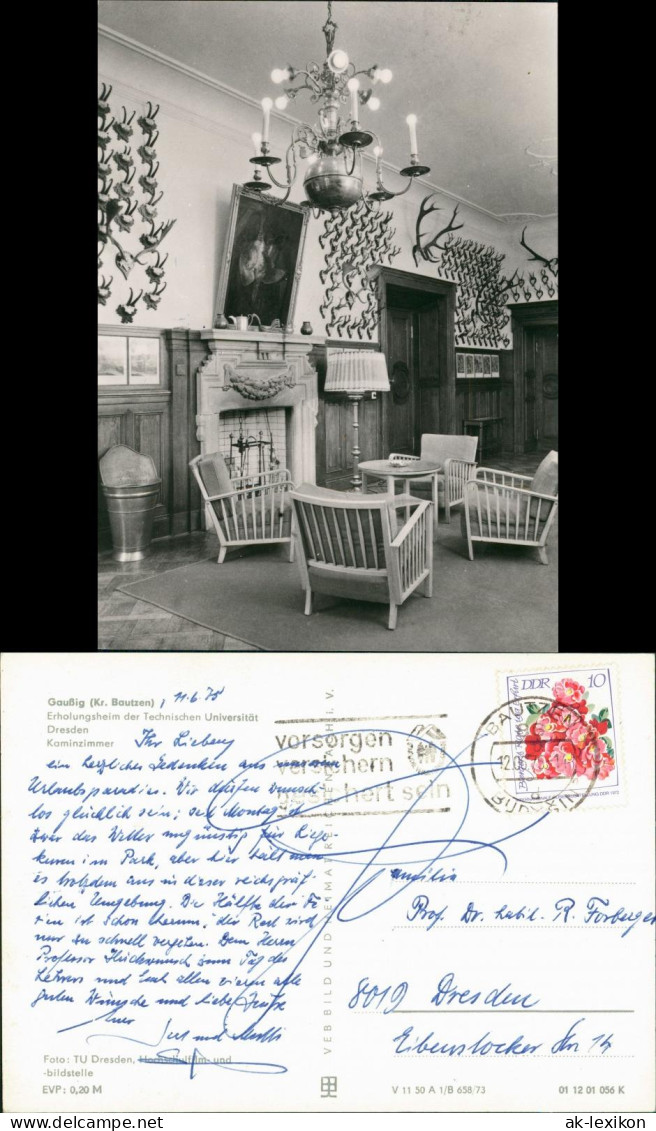 Gaußig (Kr. Bautzen), 11.6.75
Erholungsheim der Technischen Universität
Dresden
Kaminzimmer
Ihr Lieben,
ein herzliches Gedenken aus
Urlaubsparadies. Wir dürfen wunsch-
los glücklich sein; seit Montag ist
zwar das Wetter ungünstig für Liege-
kuren im Park, aber hier hält man
es trotzdem aus in dieser reichsgräf-
lichen Umgebung. Die Hälfte der Fe-
rien ist schon herum, der Rest wird
nur zu schnell vergehen. Dem Herrn
Professor Glückwunsch zum Tag des
Lehrers und Euch allen vieren alle
guten Wünsche und liebe Grüße
Eure
Foto: TU Dresden, Hochschulfilm- und
-bildstelle
EVP: 0,20 M
vorsorgen
versichern
gesichert sein
VEB BILD UND HEIMAT REICHENBACH I. V.
DDR 10
BAUTZEN
Familie
Prof. Dr. habil. R. Forberger
8019 Dresden
Eibenstocker Str. 14
V 11 50 A 1/B 658/73
01 12 01 056 K
ak-lexikon